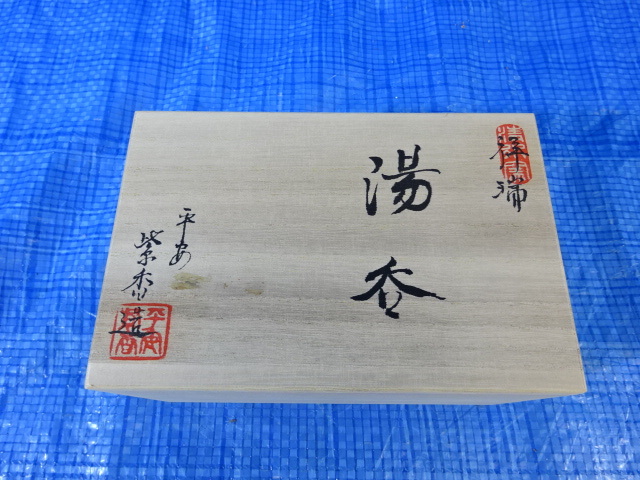 祥瑞
湯呑
平安
紫香造